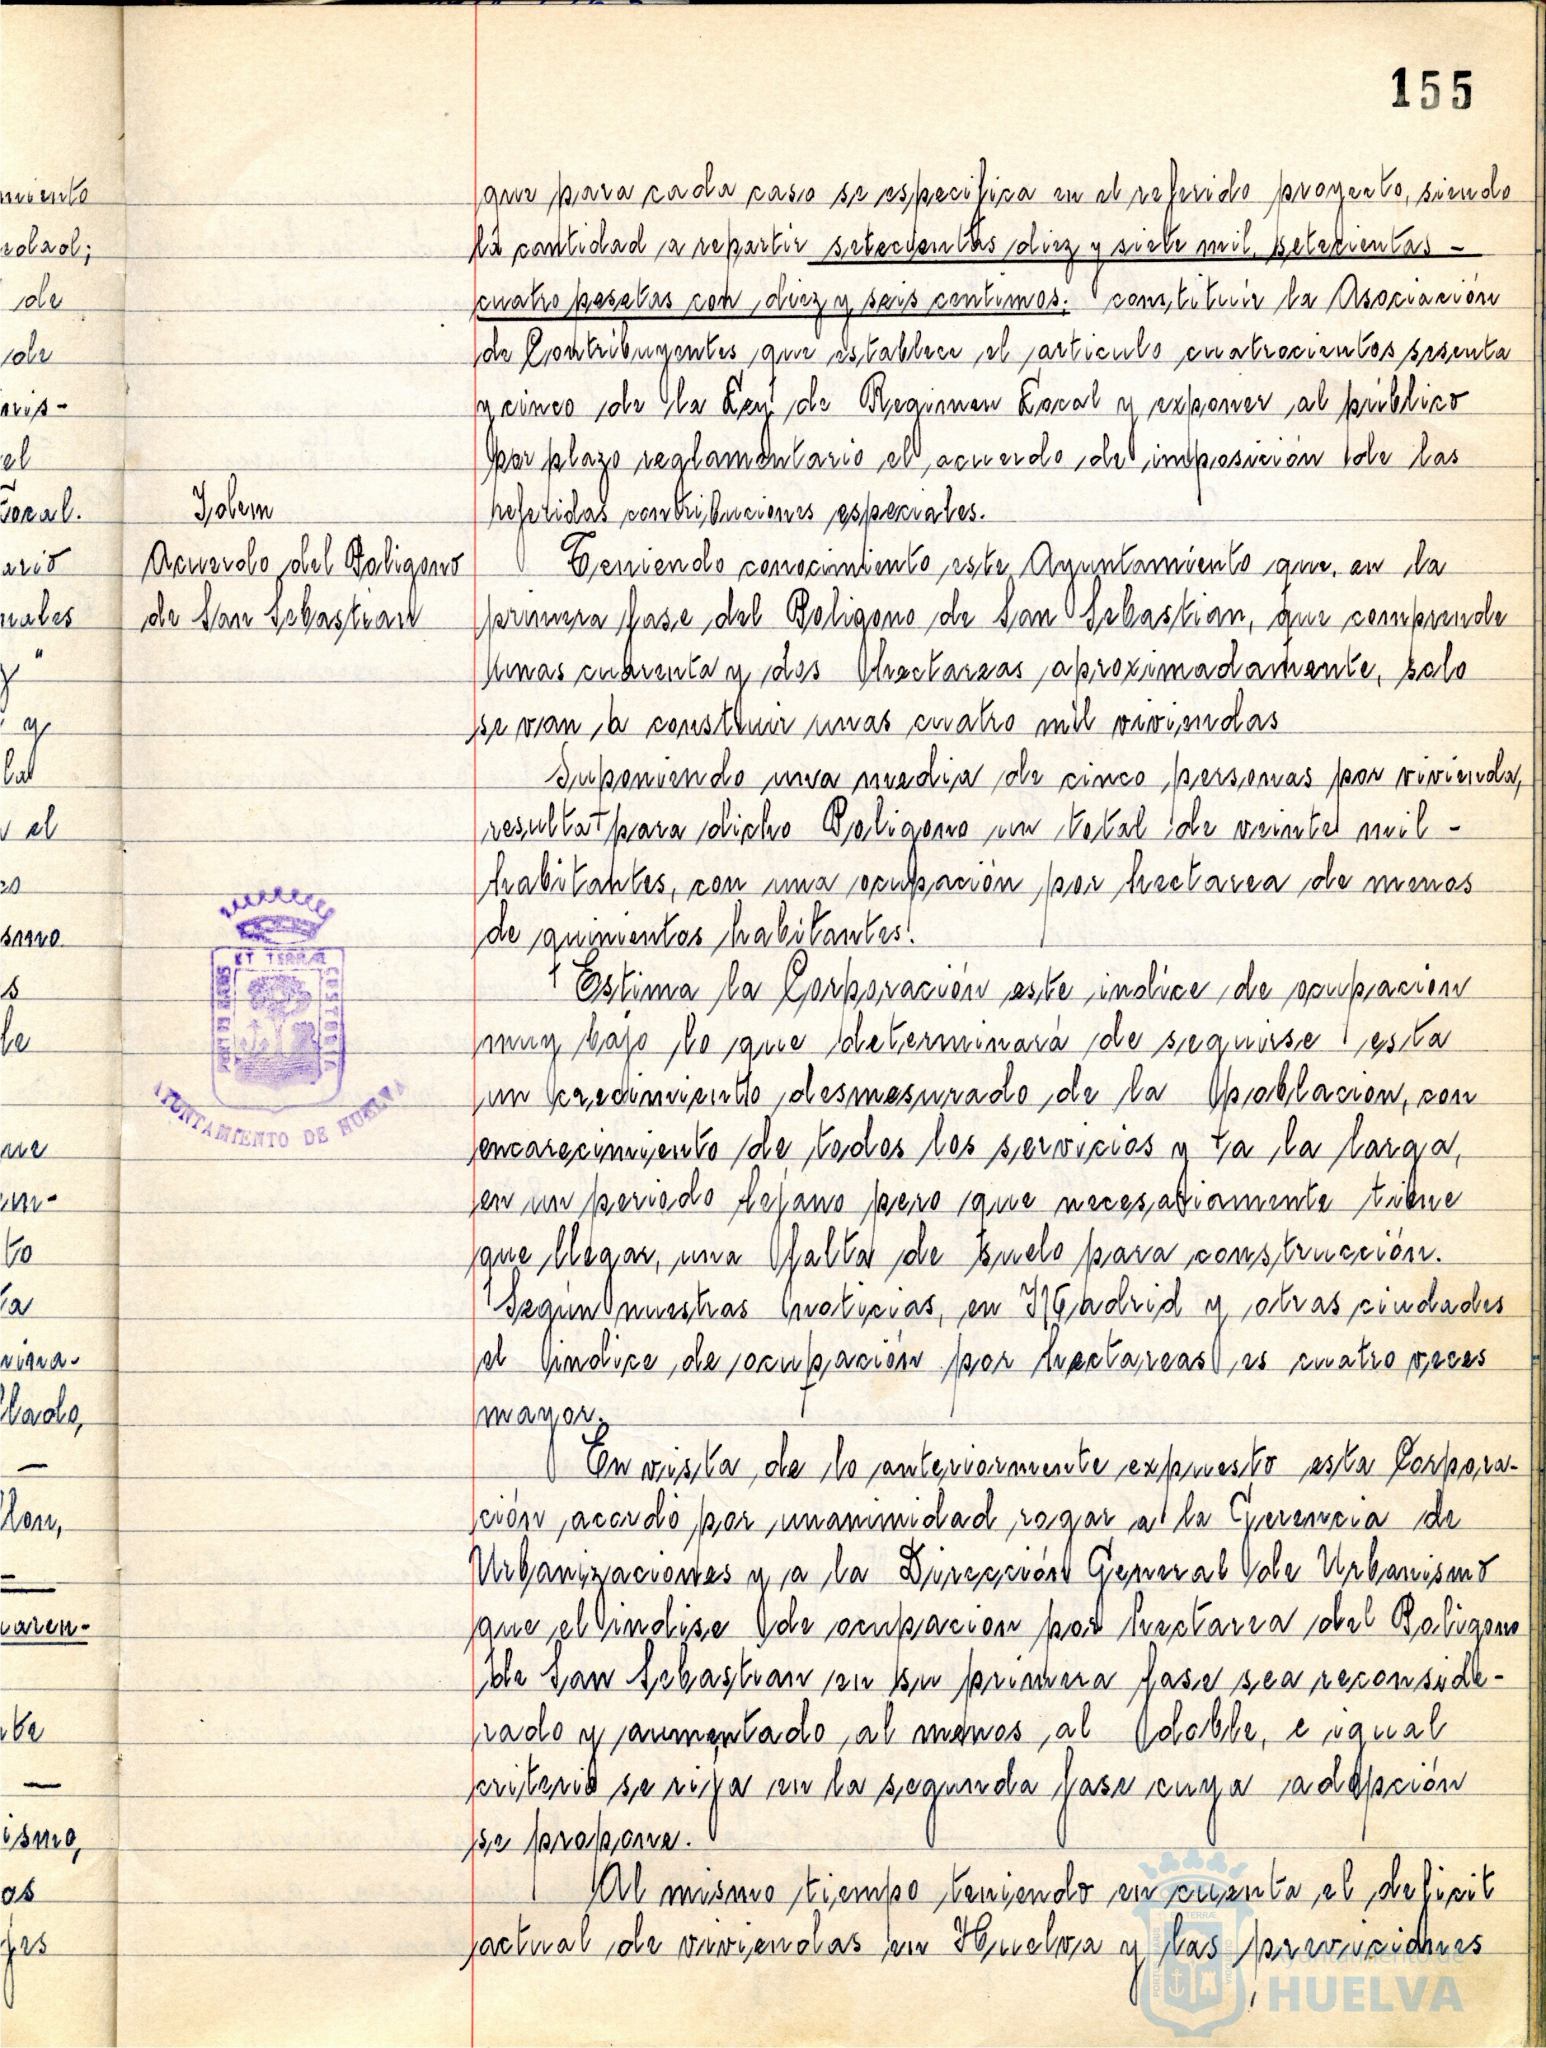 155
que para cada caso se especifica en el referido proyecto, siendo
la cantidad a repartir setecientas diez y siete mil, setecientas -
cuatro pesetas con diez y seis centimos. constituir la Asociación
de Contribuyentes que establece el articulo cuatrocientos sesenta
y cinco de la Ley de Regimen Local y exponer al público
por plazo reglamentario el acuerdo de imposición de las
referidas contribuciones especiales.
Idem
Acuerdo del Poligono
de San Sebastian
Teniendo conocimiento este Ayuntamiento que, en la
primera fase del Poligono de San Sebastian, que comprende
unas cuarenta y dos hectareas aproximadamente, solo
se van a construir unas cuatro mil viviendas
Suponiendo una media de cinco personas por vivienda,
resulta para dicho Poligono un total de veinte mil -
habitantes, con una ocupación por hectarea de menos
de quinientos habitantes.
Estima la Corporación este indice de ocupación
muy bajo lo que determinará de seguirse esta
un crecimiento desmesurado de la población, con
encarecimiento de todos los servicios y a la larga,
en un periodo lejano pero que necesariamente tiene
que llegar, una falta de suelo para construcción.
Según nuestras noticias, en Madrid y otras ciudades
el indice de ocupación por hectareas es cuatro veces
mayor.
En vista de lo anteriormente expuesto esta Corpora-
ción acordó por unanimidad rogar a la Gerencia de
Urbanizaciones y a la Dirección General de Urbanismo
que el indise de ocupacion por hectarea del Poligono
de San Sebastian en su primera fase sea reconside-
rado y aumentado al menos al doble, e igual
criterio se rija en la segunda fase cuya adopción
se propone.
Al mismo tiempo teniendo en cuenta el deficit
actual de viviendas en Huelva y las previciones
PORTUS MARIS ET TERRÆ CUSTODIA
AYUNTAMIENTO DE HUELVA
Ayuntamiento de
HUELVA